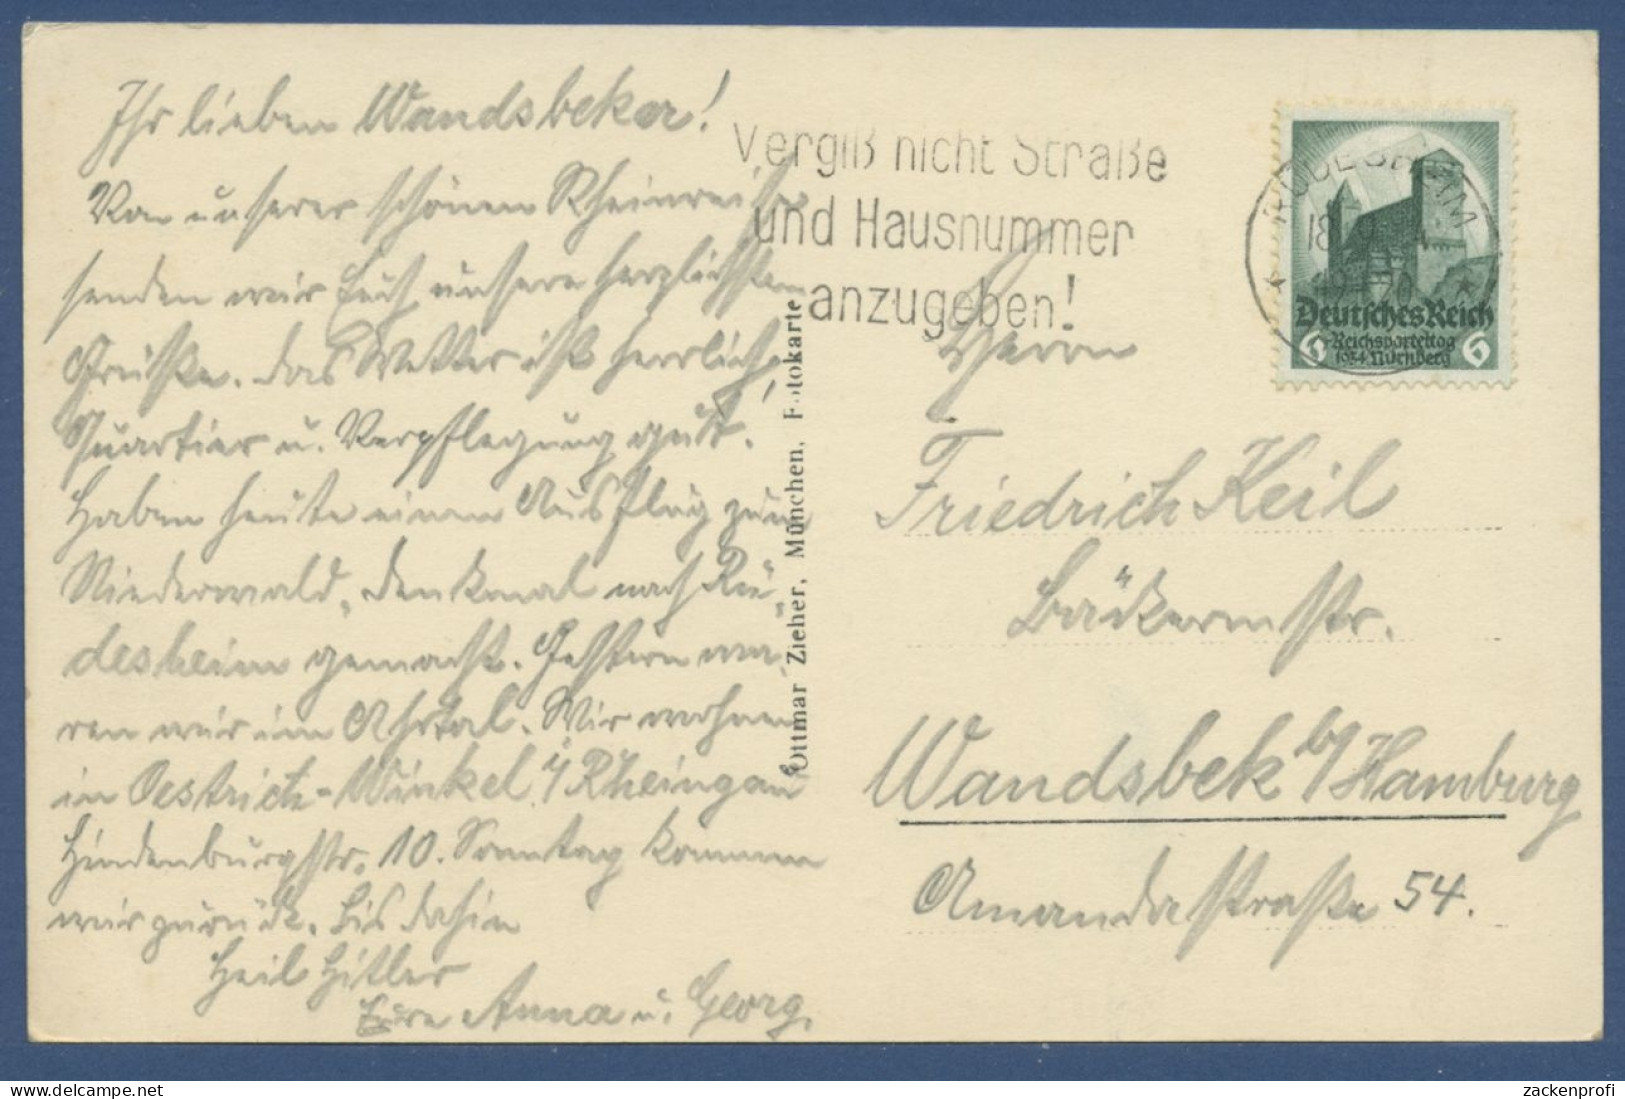 Ihr lieben Wandsbeker!
Von unserer schönen Rheinreise
senden wir Euch unsere herzlichsten
Grüße. Das Wetter ist herrlich,
Quartier u. Verpflegung gut.
Haben heute einen Ausflug zum
Niederwald-Denkmal nach Rü-
desheim gemacht. Gestern wa-
ren wir im Ahrtal. Wir wohnen
in Oestrich-Winkel i/ Rheingau
Hindenburgstr. 10. Sonntag kommen
wir zurück. Bis dahin
Heil Hitler
Eure Anna u. Georg.
Ottmar Zieher, München. Fotokarte
Vergiß nicht Straße
und Hausnummer
anzugeben!
RÜDESHEIM
18
Deutsches Reich
6 Reichsparteitag 6
1934 Nürnberg
Herrn
Friedrich Keil
Bäckermstr.
Wandsbek b/ Hamburg
Amandastraße 54.
www.delcampe.net
zackenprofi